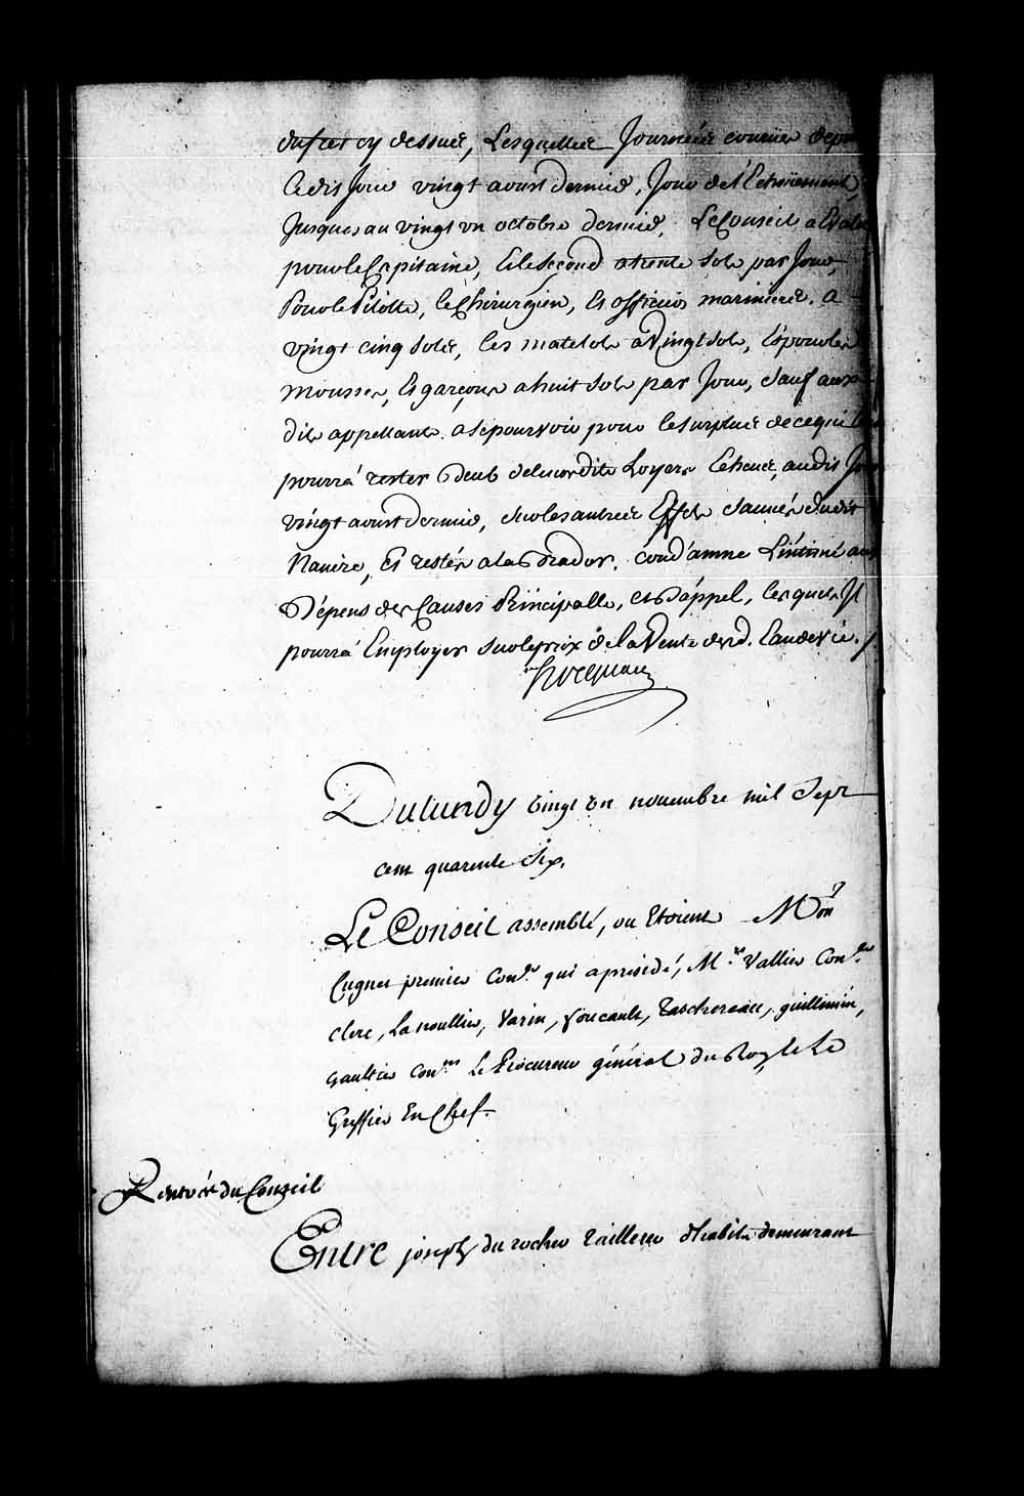 du fret cy dessus, Lesquelles Journées courues
Ledit Jour vingt aoust dernier, Jour de l'Echoüement,
Jusques au vingt un octobre dernier, Le Conseil a
pour le Capitaine, Et le Second a trente sols par Jour,
Pour le Pilotte, le Chirurgien, Et officiers mariniers. a
vingt cinq sols, les matelots a Vingt sols, Et pour les
mousses, Et garçons a huit sols par Jour, Sauf aux
dits appellants a se pourvoir pour le surplus de ce qui
pourra rester deub desdits Loyers Echeus, audit Jour
vingt aoust dernier, sur les autres Effets Sauvés dudit
Navire, Et restés a la Brador. condamne L'intimé aux
Dépens des Causes Principalle, et D'appel, lesquels Il
pourra Employer sur le prix de la Vente desd. Landevis./
hocquart
Du Lundy vingt un novembre mil Sept
cent quarente Six.
Le Conseil assemblé, ou Etoient Mons.r
Cugnet premier Con.er qui a presidé, M.rs Vallier Con.er
clerc, Lanoullier, Varin, foucault, Taschereau, guillimin,
gaultier Con.ers Le Procureur général du Roy, Et Le
Greffier En Chef.
Rentrée du Conseil
Entre joseph du rocher Tailleur d'habits demeurant